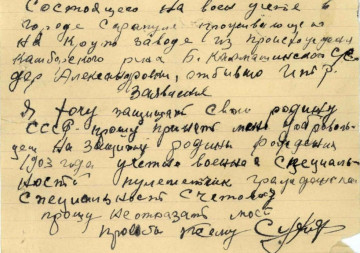 Состоящего на воен учете в
городе Сарапуле проживающего
на Круто заводе из происхождения
Камбарского р-на Б.
дер Александровки, отбывшо
Заявление
Я хочу защищать свою родину
СССР прошу принять меня доброволь-
цем на защиту родины рождения
1903 года учетно военная специаль-
ность пулеметчик гражданская
специальность счетовод
прошу не отказать моей
прозьбе